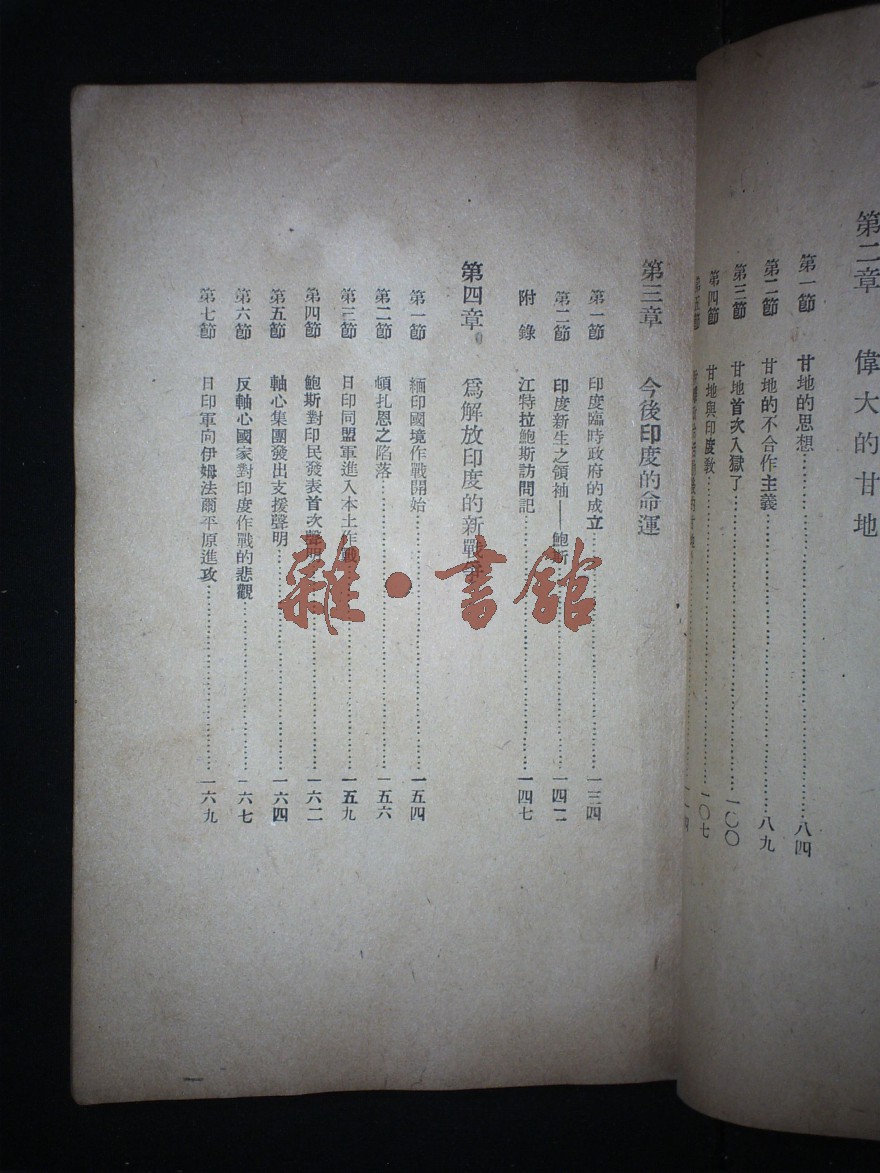 第二章 偉大的甘地
第一節 甘地的思想……八四
第二節 甘地的不合作主義……八九
第三節 甘地首次入獄了……一〇〇
第四節 甘地與印度教……一〇七
第三章 今後印度的命運
第一節 印度臨時政府的成立……一三四
第二節 印度新生之領袖——鮑斯……一四二
附錄 江特拉鮑斯訪問記……一四七
第四章 爲解放印度的新戰爭
第一節 緬印國境作戰開始……一五四
第二節 頓扎恩之陷落……一五六
第三節 日印同盟軍進入本土作戰……一五九
第四節 鮑斯對印民發表首次聲明……一六二
第五節 軸心集團發出支援聲明……一六四
第六節 反軸心國家對印度作戰的悲觀……一六七
第七節 日印軍向伊姆法爾平原進攻……一六九
雜·書館